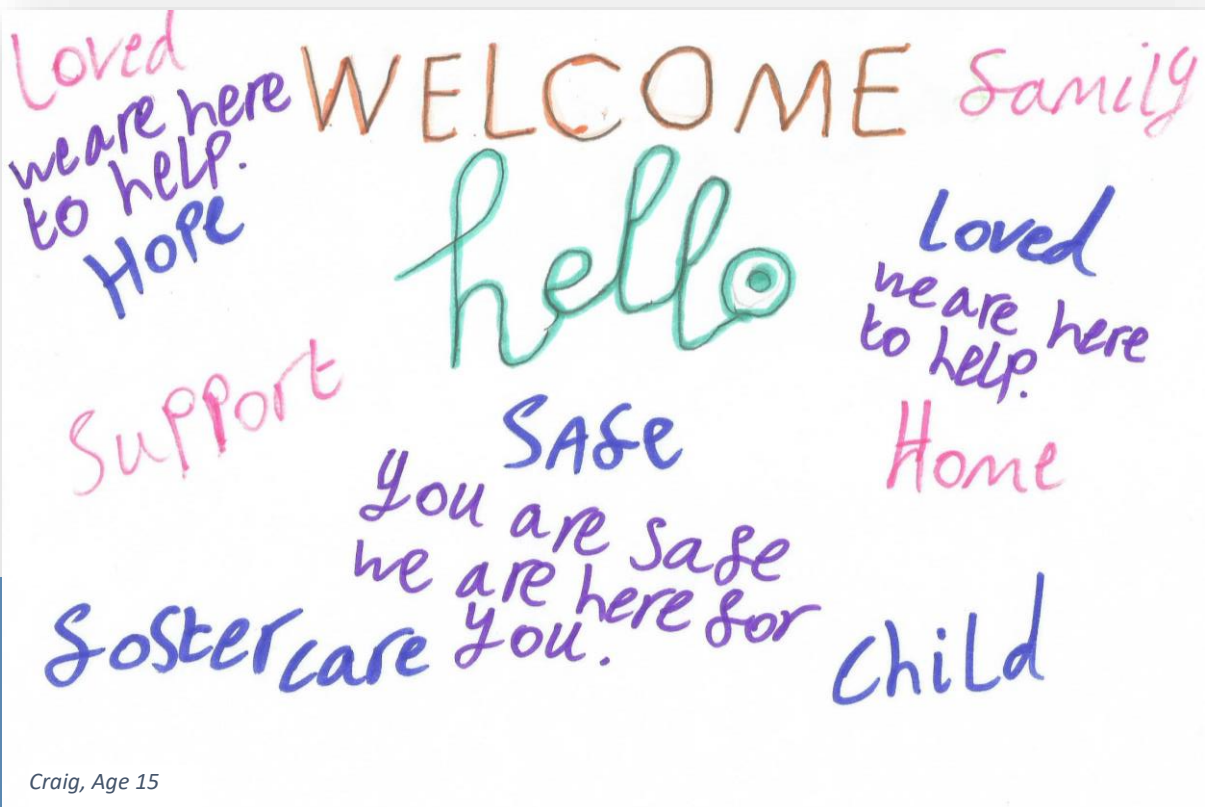 Loved
WELCOME
family
we are here
to help.
Hope
hello
Loved
we are here
to help.
Support
SAfe
Home
You are safe
we are here for
you.
fostercare
Child
Craig, Age 15